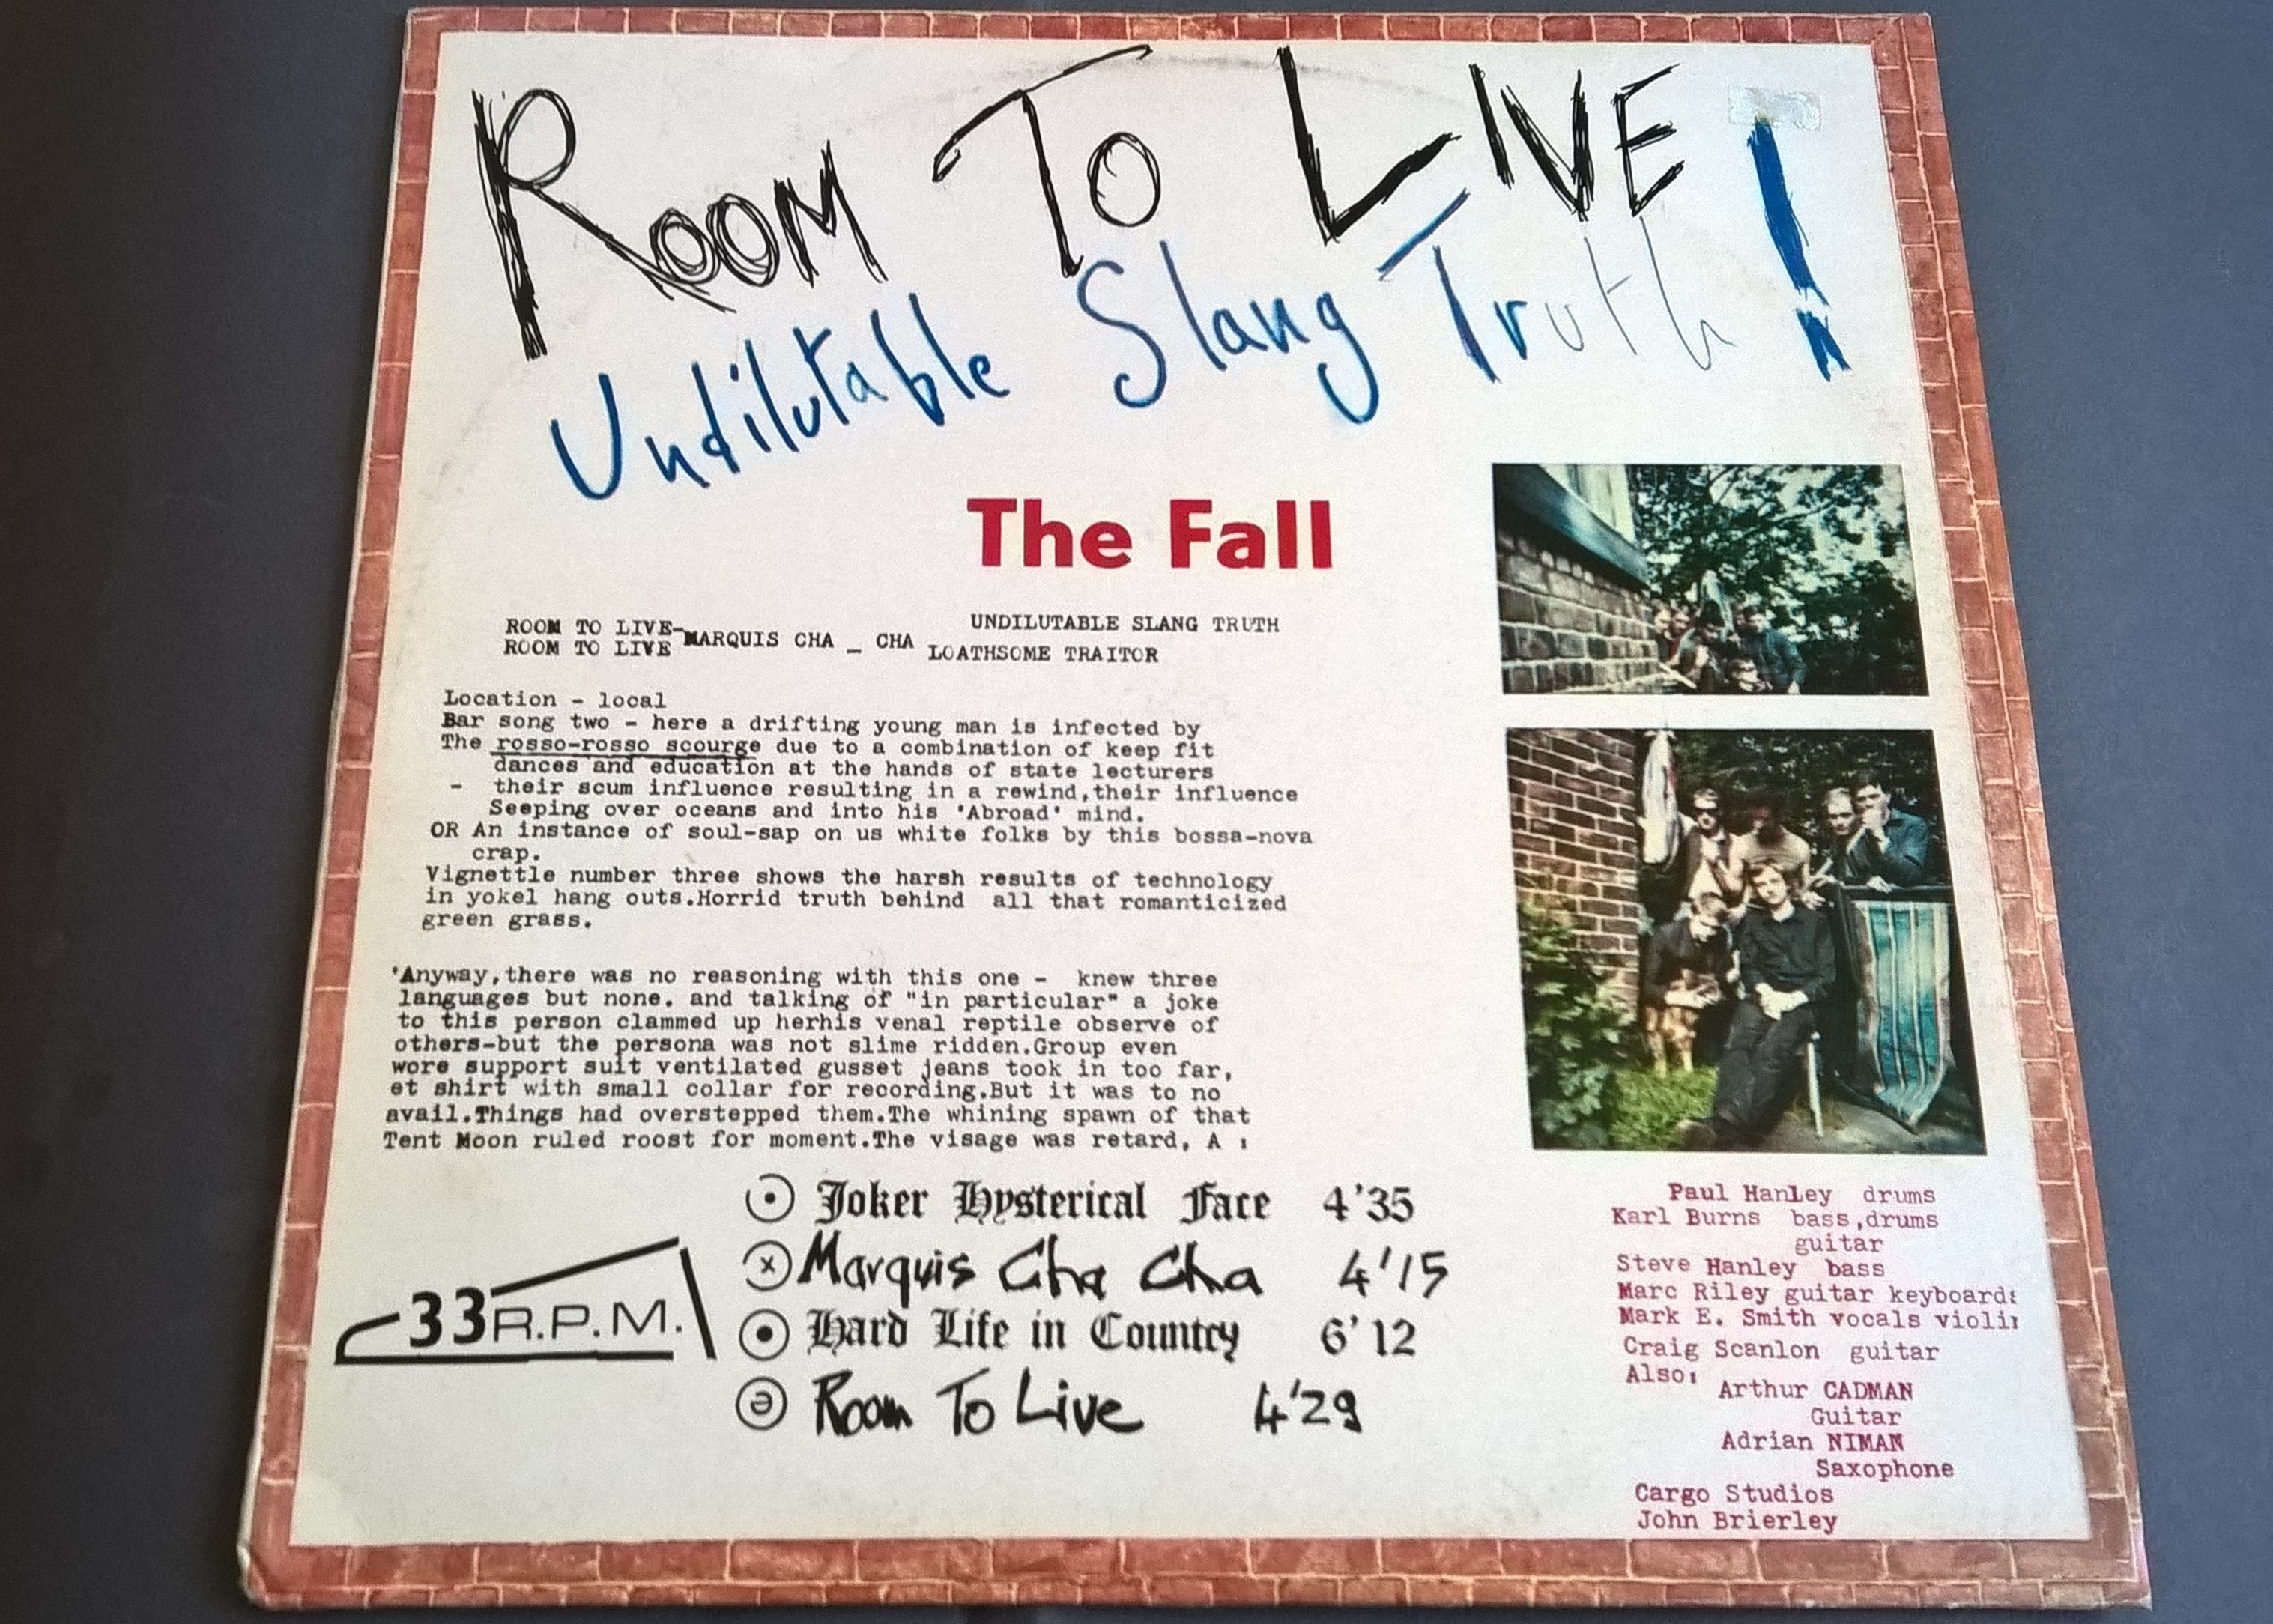 ROOM TO LIVE!
Undilutable Slang Truth
The Fall
ROOM TO LIVE-
ROOM TO LIVE
MARQUIS CHA _ CHA
UNDILUTABLE SLANG TRUTH
LOATHSOME TRAITOR
Location - local
Bar song two - here a drifting young man is infected by
The rosso-rosso scourge due to a combination of keep fit
dances and education at the hands of state lecturers
- their scum influence resulting in a rewind,their influence
Seeping over oceans and into his 'Abroad' mind.
OR An instance of soul-sap on us white folks by this bossa-nova
crap.
Vignettle number three shows the harsh results of technology
in yokel hang outs.Horrid truth behind all that romanticized
green grass.
'Anyway,there was no reasoning with this one - knew three
languages but none. and talking of "in particular" a joke
to this person clammed up herhis venal reptile observe of
others-but the persona was not slime ridden.Group even
wore support suit ventilated gusset jeans took in too far,
et shirt with small collar for recording.But it was to no
avail.Things had overstepped them.The whining spawn of that
Tent Moon ruled roost for moment.The visage was retard, A :
Joker Hysterical Face 4'35
x Marquis Cha Cha 4'15
Hard Life in Country 6'12
ə Room To Live 4'29
33 R.P.M.
Paul Hanley drums
Karl Burns bass,drums
guitar
Steve Hanley bass
Marc Riley guitar keyboards
Mark E. Smith vocals violin
Craig Scanlon guitar
Also:
Arthur CADMAN
Guitar
Adrian NIMAN
Saxophone
Cargo Studios
John Brierley